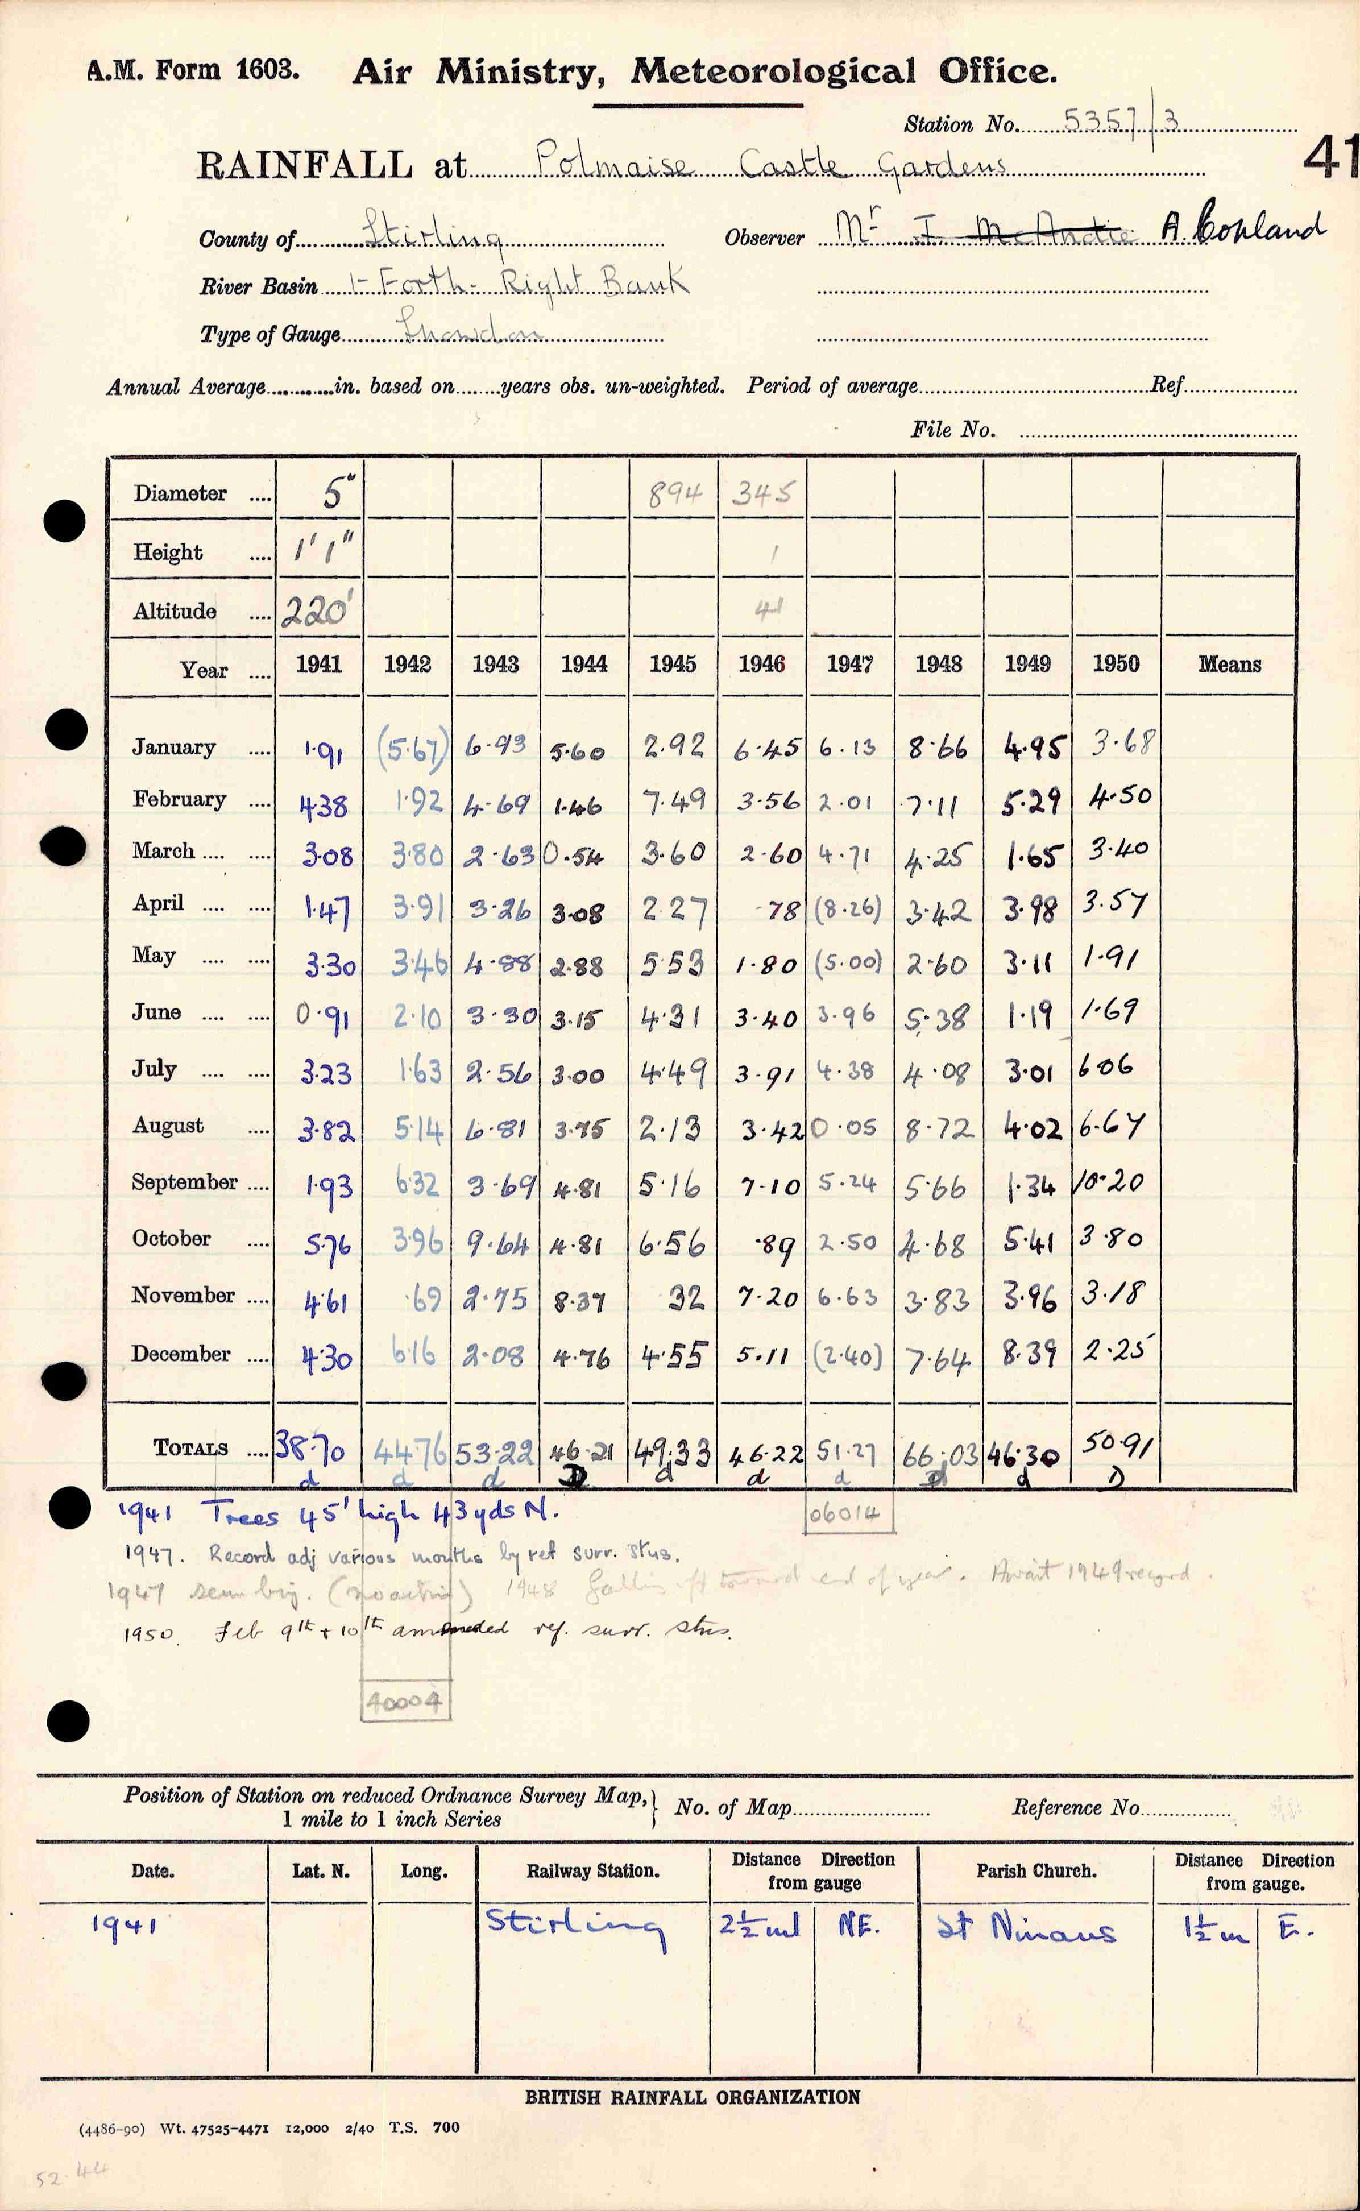 A.M. Form 1603. Air Ministry, Meteorological Office.
Station No. 5357/3
41
RAINFALL at Polmaise Castle Gardens
County of Stirling Observer Mr I McAndie A Copland
River Basin 1- Forth - Right Bank
Type of Gauge Snowdon
Annual Average in. based on years obs. un-weighted. Period of average Ref.
File No.
Diameter 5" 894 345
Height 1' 1" 1
Altitude 220' 41
Year 1941 1942 1943 1944 1945 1946 1947 1948 1949 1950 Means
January 1.91 (5.67) 6.93 5.60 2.92 6.45 6.13 8.66 4.95 3.68
February 4.38 1.92 4.69 1.46 7.49 3.56 2.01 7.11 5.29 4.50
March 3.08 3.80 2.63 0.54 3.60 2.60 4.71 4.25 1.65 3.40
April 1.47 3.91 3.26 3.08 2.27 .78 (8.26) 3.42 3.98 3.57
May 3.30 3.46 4.88 2.88 5.53 1.80 (5.00) 2.60 3.11 1.91
June 0.91 2.10 3.30 3.15 4.31 3.40 3.96 5.38 1.19 1.69
July 3.23 1.63 2.56 3.00 4.49 3.91 4.38 4.08 3.01 6.06
August 3.82 5.14 6.81 3.75 2.13 3.42 0.05 8.72 4.02 6.67
September 1.93 6.32 3.69 4.81 5.16 7.10 5.24 5.66 1.34 10.20
October 5.76 3.96 9.64 4.81 6.56 .89 2.50 4.68 5.41 3.80
November 4.61 .69 2.75 8.37 32 7.20 6.63 3.83 3.96 3.18
December 4.30 6.16 2.08 4.76 4.55 5.11 (2.40) 7.64 8.39 2.25
TOTALS 38.70 44.76 53.22 46.21 49.33 46.22 51.27 66.03 46.30 50.91
d d d D d d d D d D
1941 Trees 45' high 43 yds N.
06014
1947. Record adj various months by ref surr. stns.
1947 seem big. (no action) 1948 falling off toward end of year. Await 1949 record.
1950. Feb 9th + 10th amended ref. surr. stns.
40004
Position of Station on reduced Ordnance Survey Map, 1 mile to 1 inch Series } No. of Map Reference No.
Date. Lat. N. Long. Railway Station. Distance Direction from gauge Parish Church. Distance Direction from gauge.
1941 Stirling 2½ ml NE. St Ninians 1½ m E.
BRITISH RAINFALL ORGANIZATION
(4486-90) Wt. 47525-4471 12,000 2/40 T.S. 700
52.44